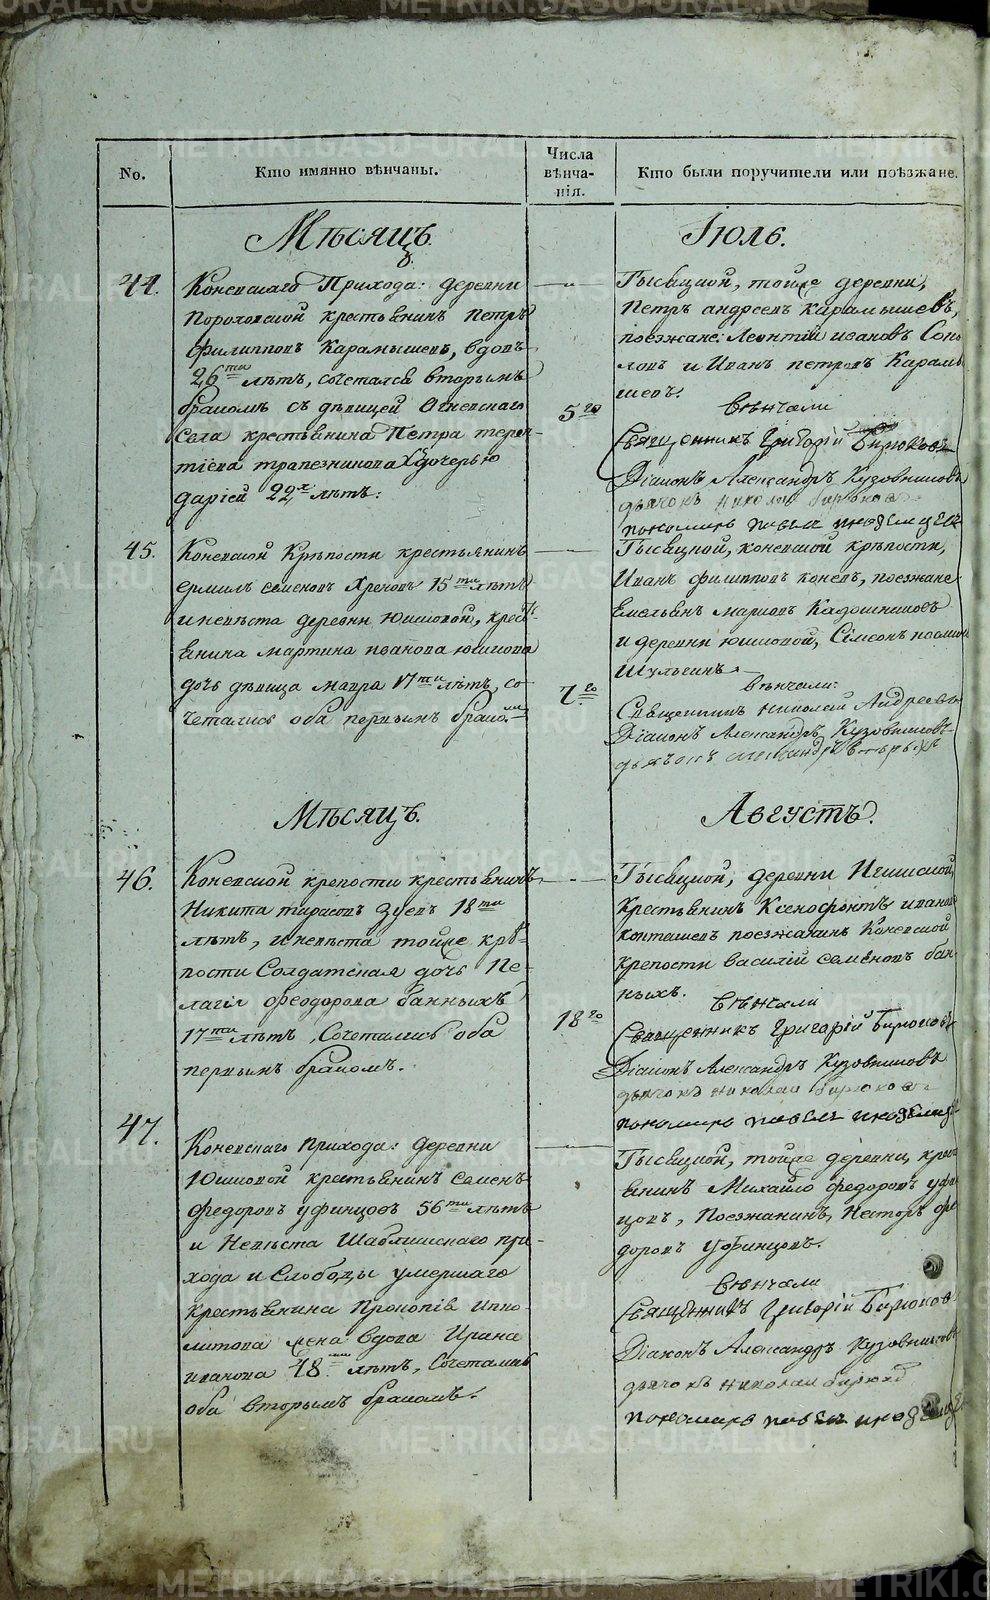 No.
Кто имянно вѣнчаны.
Числа
вѣнча-
нія.
Кто были поручители или поѣзжане.
Мѣсяцъ
Іюль.
44.
Коневскаго Прихода: деревни
Пороховской крестьянинъ Петръ
Филипповъ Карамышевъ, вдовъ
26ти лѣтъ, сочетался вторымъ
бракомъ съ дѣвицей Огневскаго
села крестьянина Петра терен-
тіева трапезникова дочерью
даріей 22х лѣтъ:
5го
Тысяцкой, тойже деревни,
Петръ андреевъ Карамышевъ,
поезжане: Леонтій ивановъ Соко
ловъ и Иванъ петровъ Карамы
шевъ.
вѣнчали
Священникъ Григорій Бирюковъ
Діаконъ Александръ Кузовниковъ
дьячокъ николай бирюковъ
пономарь павел
45.
Коневской Крѣпости крестьянинъ
ермилъ семеновъ Хреновъ 15ти лѣтъ
и невѣста деревни Юшковой, крест-
янина мартина иванова юшкова
дочь дѣвица мавра 17ти лѣтъ, со-
четались оба первымъ бракомъ
7го
Тысяцкой, коневской крѣпости,
Иванъ филипповъ коневъ, поезжане
Емельянъ марковъ Кадошниковъ
и деревни юшковой, Сімеонъ
Шульгинъ
вѣнчали:
Священникъ николай Андреевъ
Діаконъ Александръ Кузовниковъ
Мѣсяцъ.
Августъ.
46.
Коневской крепости крестьянинъ
Никита тарасовъ Зуевъ 18ти
лѣтъ, и невѣста тойже крѣ-
пости Солдатская дочь Пе-
лагія феодорова банныхъ
17ти лѣтъ, Сочетались оба
первымъ бракомъ.
18го
Тысяцкой, деревни
Крестьянинъ Ксенофонтъ иванов
поезжанинъ Коневской
крепости василій семеновъ бан
ныхъ.
вѣнчали
Священникъ Григорій Бирюковъ
Діаконъ Александръ Кузовниковъ
дьячокъ николай бирюковъ
пономарь павелъ
47.
Коневскаго прихода: деревни
Юшковой крестьянинъ семенъ
федоровъ уфинцовъ 56ти лѣтъ
и Невѣста Шаблишскаго при-
хода и Слободы умершаго
крестьянина Прокопія иппо-
литова жена вдова Ирина
иванова 48ми лѣтъ, Сочетались
оба вторымъ бракомъ.
Тысяцкой, тойже деревни, крест
янинъ Михайло федоровъ уфин
цовъ, Поезжанинъ, Несторъ фе
доровъ Уфинцовъ.
вѣнчали
Священникъ Григорій Бирюков
Діаконъ Александръ Кузовниковъ
дьячокъ николай бирюков
пономарь павел
METRIKI.GASO-URAL.RU